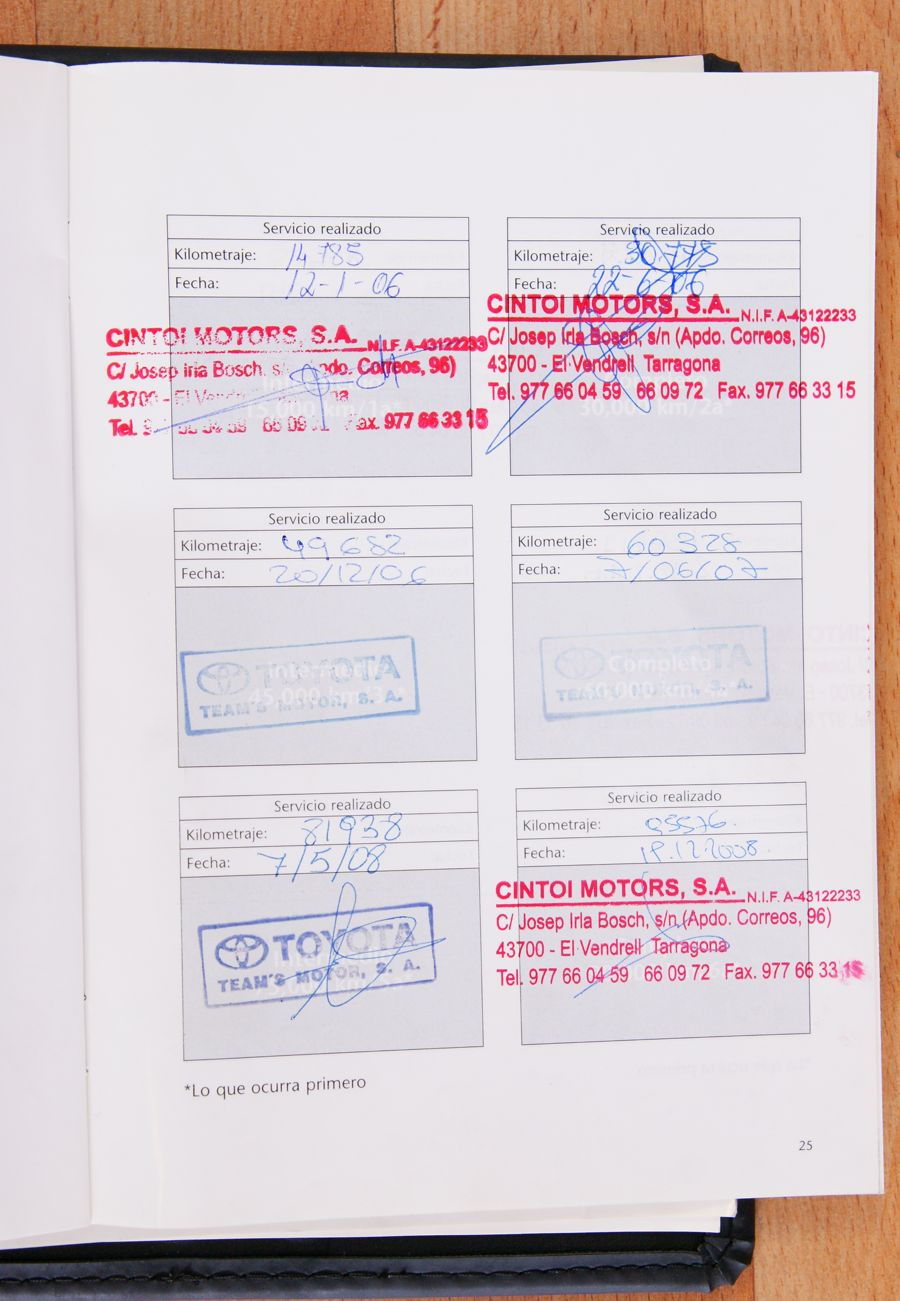 Servicio realizado
Kilometraje: 14 785
Fecha: 12-1-06
CINTOI MOTORS, S.A. N.I.F. A-43122233
C/ Josep Iria Bosch, Apdo. Correos, 96)
43700 - El
15.000 km/1a*
Tel. 66 09 Fax. 977 66 33 15
Servicio realizado
Kilometraje: 30.775
Fecha: 22-6-06
CINTOI MOTORS, S.A. N.I.F. A-43122233
C/ Josep Irla Bosch, s/n (Apdo. Correos, 96)
43700 - El Vendrell Tarragona
Tel. 977 66 04 59 66 09 72 Fax. 977 66 33 15
30,000 km/2a*
Servicio realizado
Kilometraje: 49 682
Fecha: 20/12/06
TOYOTA
Intermedio
45,000 km/3a*
TEAM'S MOTOR, S. A.
Servicio realizado
Kilometraje: 60 328
Fecha: 7/06/07
TOYOTA
Completo
60,000 km/4a*
TEAM'S MOTOR, S. A.
Servicio realizado
Kilometraje: 81938
Fecha: 7/5/08
TOYOTA
TEAM'S MOTOR, S. A.
Servicio realizado
Kilometraje:
Fecha: 12.2008
CINTOI MOTORS, S.A. N.I.F. A-43122233
C/ Josep Irla Bosch, s/n (Apdo. Correos, 96)
43700 - El Vendrell Tarragona
Tel. 977 66 04 59 66 09 72 Fax. 977 66 33 15
*Lo que ocurra primero
25